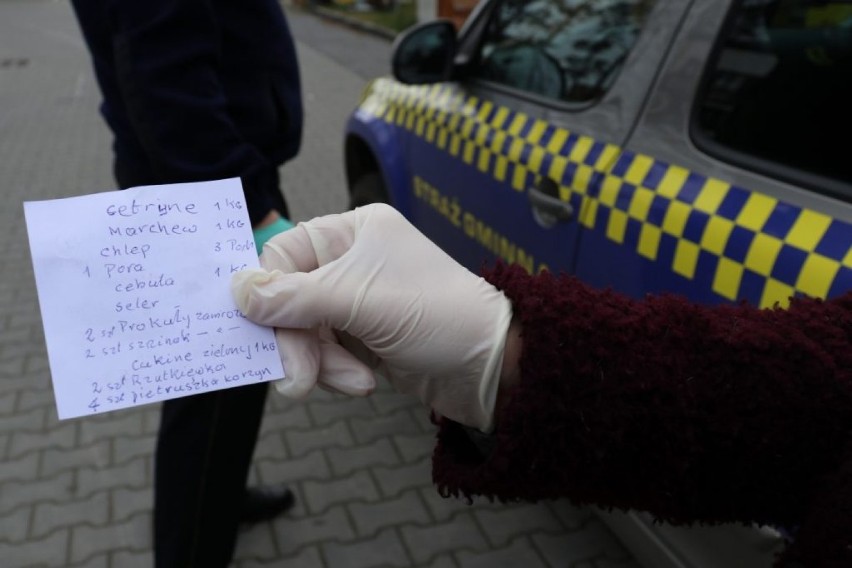 cetryne 1 kg
Marchew 1 KG
chlep 3 Por
1 Pora
cebula 1 kg
seler
2 szt Prokuły zamroż
2 szt szpinak — 11 —
cukinie zielony 1 kg
2 szt Rzutkiewka
4 szt pietruszka korzyn
STRAŻ GMINN